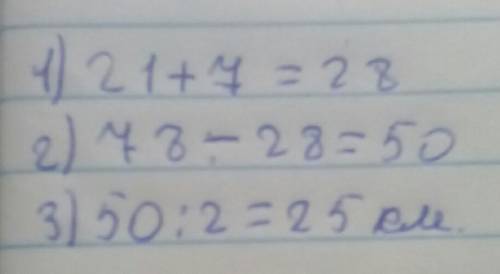 1) 21+7=28
2) 78-28=50
3) 50:2=25 км.